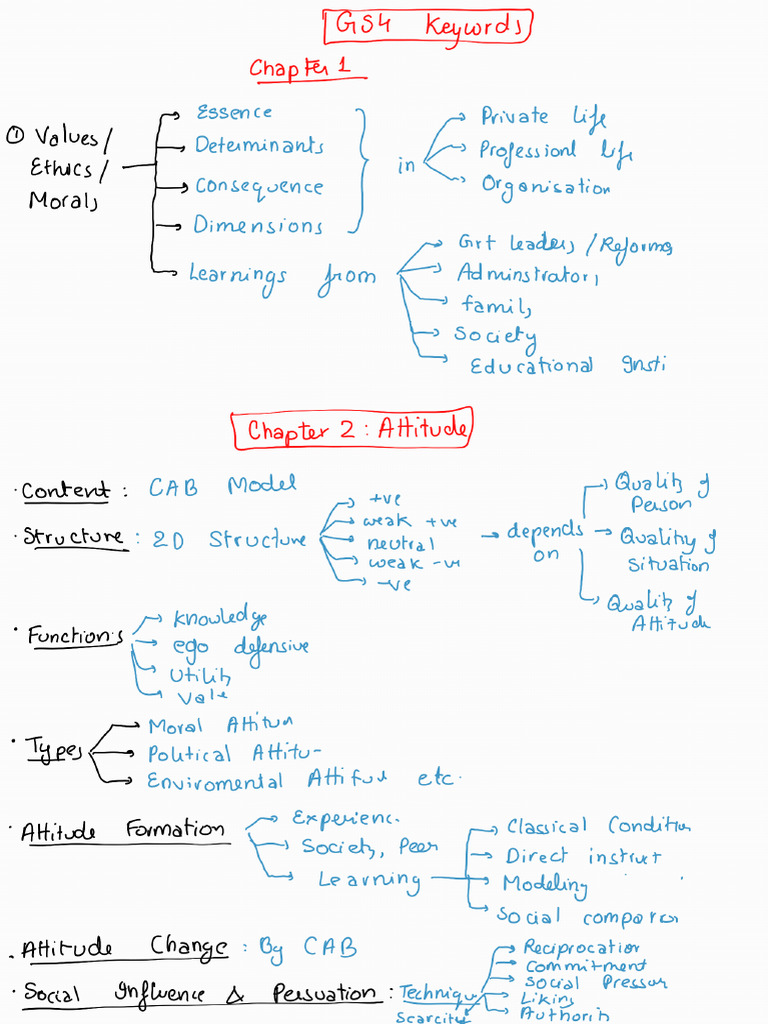 GS4 Keywords
Chapter 1
① Values/
Ethics/
Morals
Essence
Determinants
Consequence
Dimensions
in
Private life
Professionl life
Organisation
Learnings from
Grt leaders/Reforms
Adminstrators
family
Society
Educational Insti
Chapter 2 : Attitude
· Content : CAB Model
· Structure : 2D Structure
+ve
weak +ve
neutral
weak -ve
-ve
depends on
Quality of Person
Quality of Situation
Quality of Attitude
· Functions
Knowledge
ego defensive
Utility
Vale
· Types
Moral Attitud
Political Attitu-
Enviromental Attitud etc.
· Attitude Formation
Experienc.
Society, Peer
Learning
Classical Condition
Direct instruct
Modeling
Social comparon
· Attitude Change : By CAB
· Social Influence & Persuation : Technique
Reciprocation
Commitment
Social Pressur
Liking
Authority
Scarcity